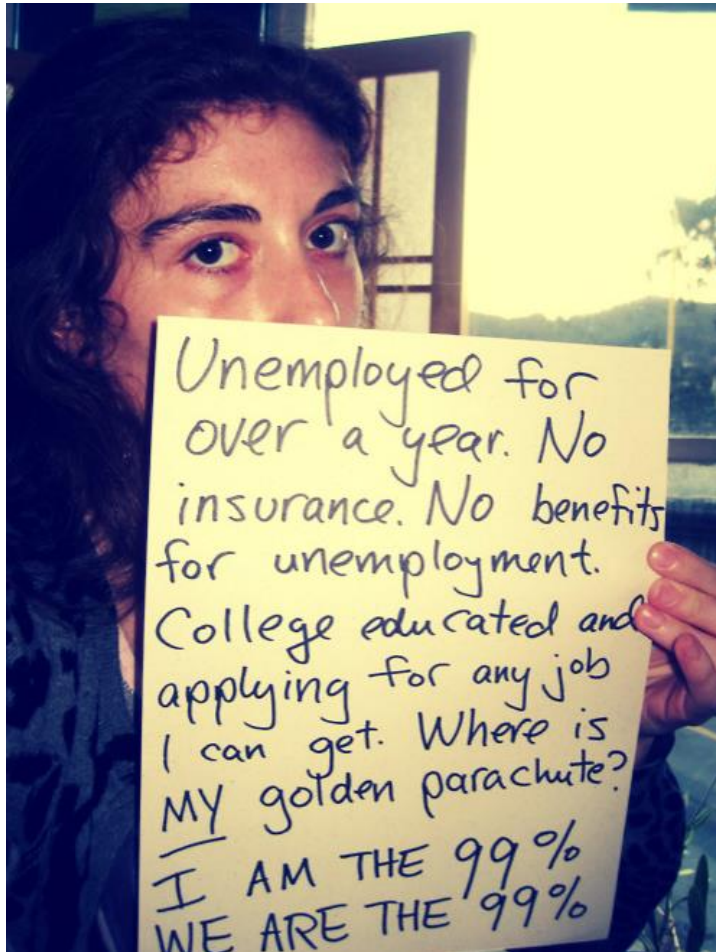 Unemployed for
over a year. No
insurance. No benefits
for unemployment.
College educated and
applying for any job
I can get. Where is
MY golden parachute?
I AM THE 99%
WE ARE THE 99%